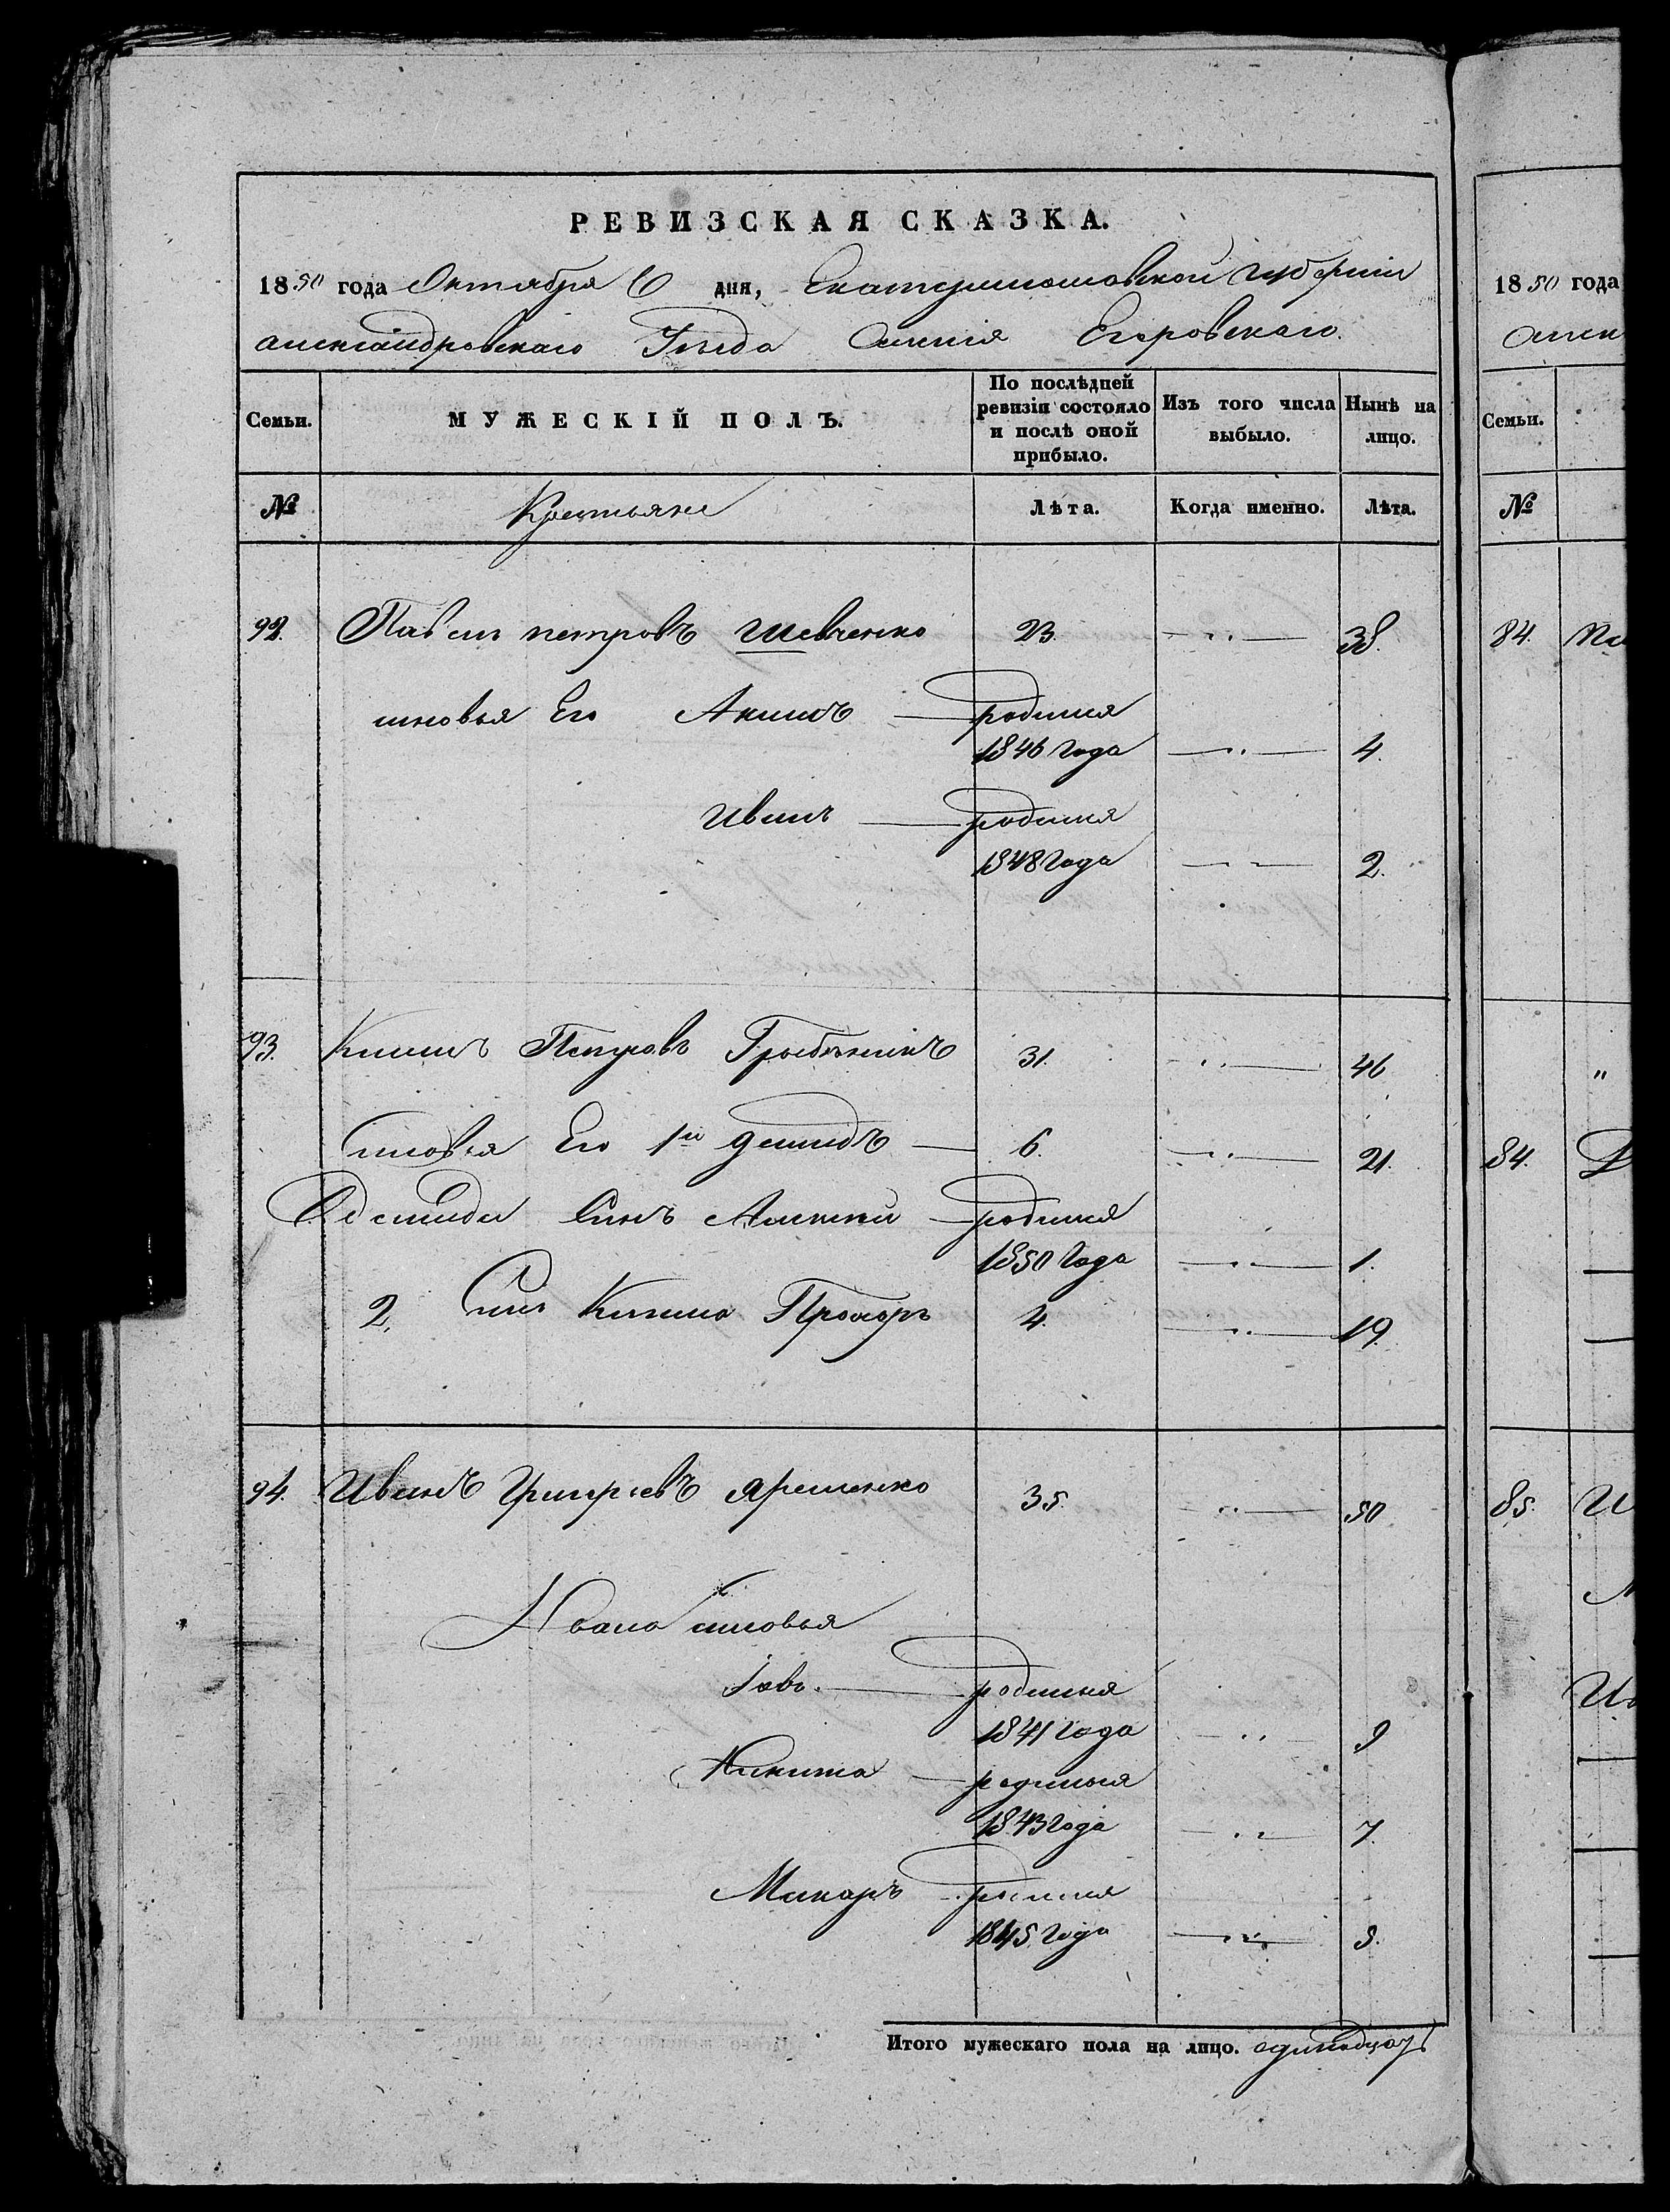 РЕВИЗСКАЯ СКАЗКА.
1850 года Октября 6 дня, Екатеринославской губерніи
александровскаго Уѣзда Имѣнія Егоровскаго.
Семьи. МУЖЕСКІЙ ПОЛЪ. По послѣдней ревизіи состояло и послѣ оной прибыло. Изъ того числа выбыло. Нынѣ на лицо.
№ Крестьяне Лѣта. Когда именно. Лѣта.
92. Павелъ петровъ Шевченко 23. — " — 38.
сыновья Его Акимъ — родился
1846 года — " — 4.
Иванъ — родился
1848 года — " — 2.
93. Климъ Петровъ Гребѣникъ 31. — " — 46
Сыновья Его 1й демидъ — 6. — " — 21.
демида Сынъ Алексей — родился
1850 года — " — 1.
2. Сынъ Клима Прохоръ 4. — " — 19.
94. Иванъ Григорьевъ Яременко 35. — " — 50
Ивана сыновья
Іовъ. — родился
1841 года — " — 9
Никита — родился
1843 года — " — 7.
Макаръ — родился
1845 года — " — 5.
Итого мужескаго пола на лицо. одинадцать
1850 года
Семьи.
№
84.
"
84.
85. И